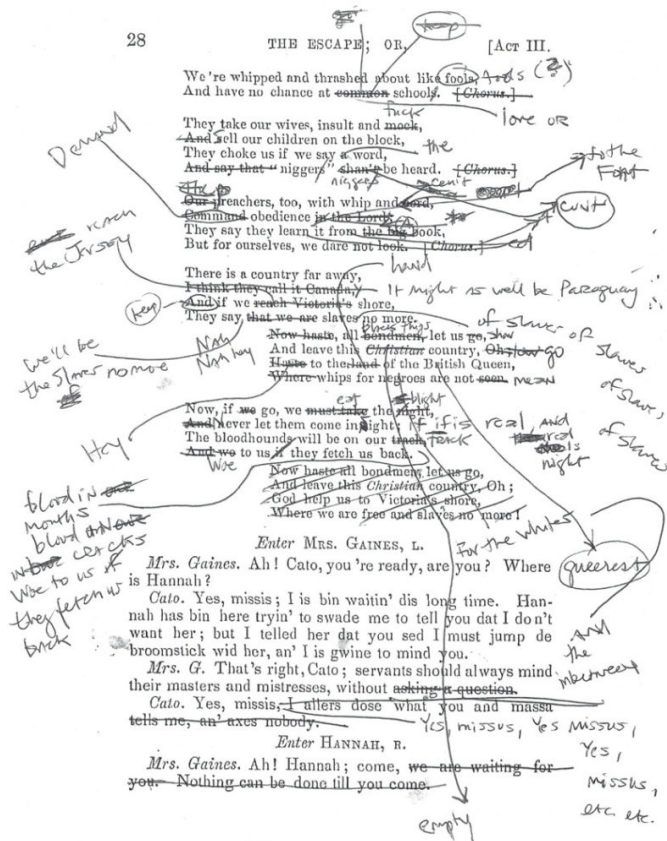 keep
28 THE ESCAPE; OR, [ACT III.
We're whipped and thrashed about like fools, fools (?)
And have no chance at common schools. [Chorus.]
fuck love OR
They take our wives, insult and mock,
Demand
And sell our children on the block,
They choke us if we say a word, the
And say that "niggers" shan't be heard. [Chorus.] to the
niggers cunt Font
Our preachers, too, with whip and cord, cunt
Command obedience in the Lord;
They say they learn it from the big book,
But for ourselves, we dare not look. [Chorus.] ed
reach
the Jersey
There is a country far away, hand
I think they call it Canada, It might as well be Paraguay
keep And if we reach Victoria's shore,
They say that we are slaves no more.
of slaves of
slaves
of slaves
of slaves
we'll be
the slaves no more
if
Nah
Nah hey
Now haste, all bondmen, let us go,
And leave this Christian country, Oh; go
Haste to the land of the British Queen,
Where whips for negroes are not seen. mean
eat blight
Now, if we go, we must take the night,
And Never let them come in sight; if if is real, and
The bloodhounds will be on our track, track
And wo to us if they fetch us back. night
Hey Woe
Now haste all bondmen, let us go,
And leave this Christian country, Oh;
God help us to Victoria's shore,
Where we are free and slaves no more!
blood in
months
blood
cracks
Woe to us if
they fetch us
back
Enter MRS. GAINES, L.
For the whites queerest
Mrs. Gaines. Ah! Cato, you're ready, are you? Where
is Hannah?
Cato. Yes, missis; I is bin waitin' dis long time. Han-
nah has bin here tryin' to swade me to tell you dat I don't
want her; but I telled her dat you sed I must jump de
broomstick wid her, an' I is gwine to mind you.
And
the
inbetween
Mrs. G. That's right, Cato; servants should always mind
their masters and mistresses, without asking a question.
Cato. Yes, missis, I allers dose what you and massa
tells me, an' axes nobody.
Yes, missus, Yes missus,
Yes,
missus,
etc. etc.
Enter HANNAH, R.
Mrs. Gaines. Ah! Hannah; come, we are waiting for
you. Nothing can be done till you come.
empty